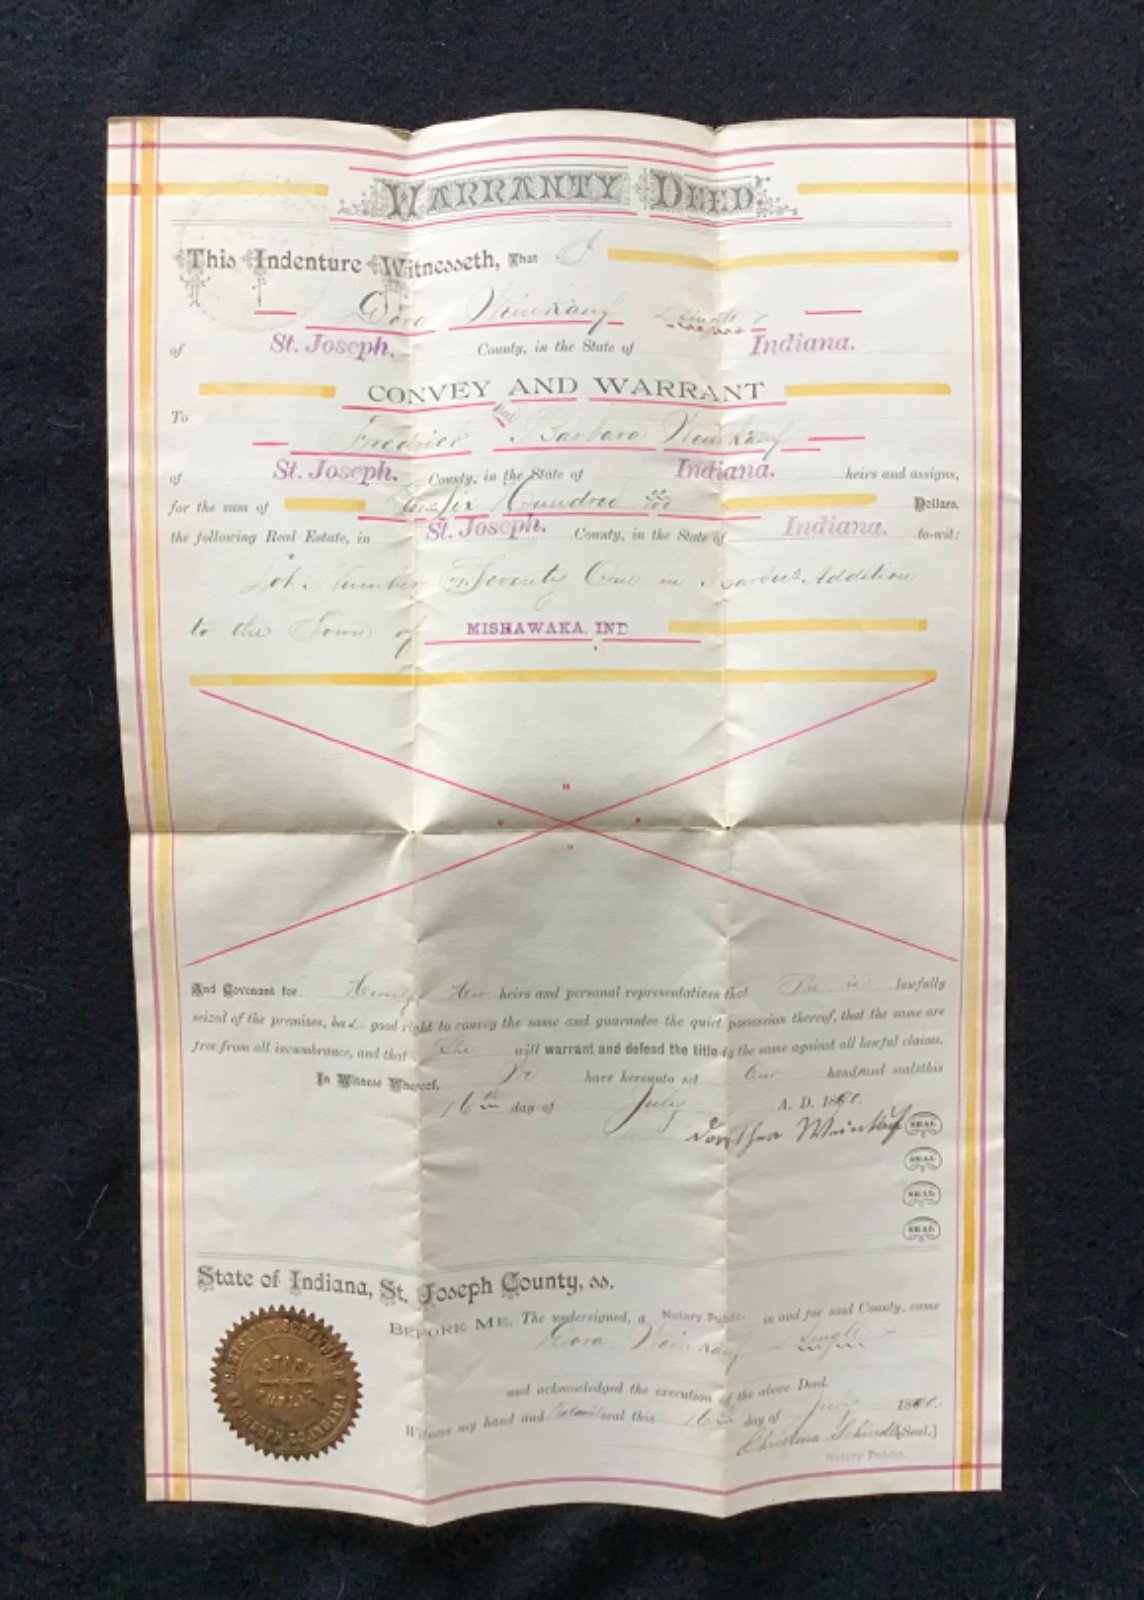 WARRANTY DEED
This Indenture Witnesseth, That I
Dora Weinkauf (Single)
of St. Joseph. County, in the State of Indiana.
CONVEY AND WARRANT
To
Fredrick and Barbara Weinkauf
of St. Joseph. County, in the State of Indiana. heirs and assigns,
for the sum of Six Hundred 00/100 Dollars,
the following Real Estate, in St. Joseph. County, in the State of Indiana. to-wit:
Lot Number Seventy One in Addition
to the Town of MISHAWAKA, IND
And Covenant for Herself Her heirs and personal representatives that She is lawfully
seized of the premises, has good right to convey the same and guarantee the quiet possession thereof, that the same are
free from all incumbrance, and that She will warrant and defend the title to the same against all lawful claims.
In Witness Whereof, We have hereunto set Our hand and seal this
16th day of July A. D. 18
Dorothea Weinkauf SEAL
SEAL
SEAL
SEAL
State of Indiana, St. Joseph County, ss.
BEFORE ME, The undersigned, a Notary Public. in and for said County, came
Dora Weinkauf Single
and acknowledged the execution of the above Deed.
Witness my hand and Notarial seal this 16th day of July 18
[Seal.]
Notary Public.
NOTARY
PUBLIC